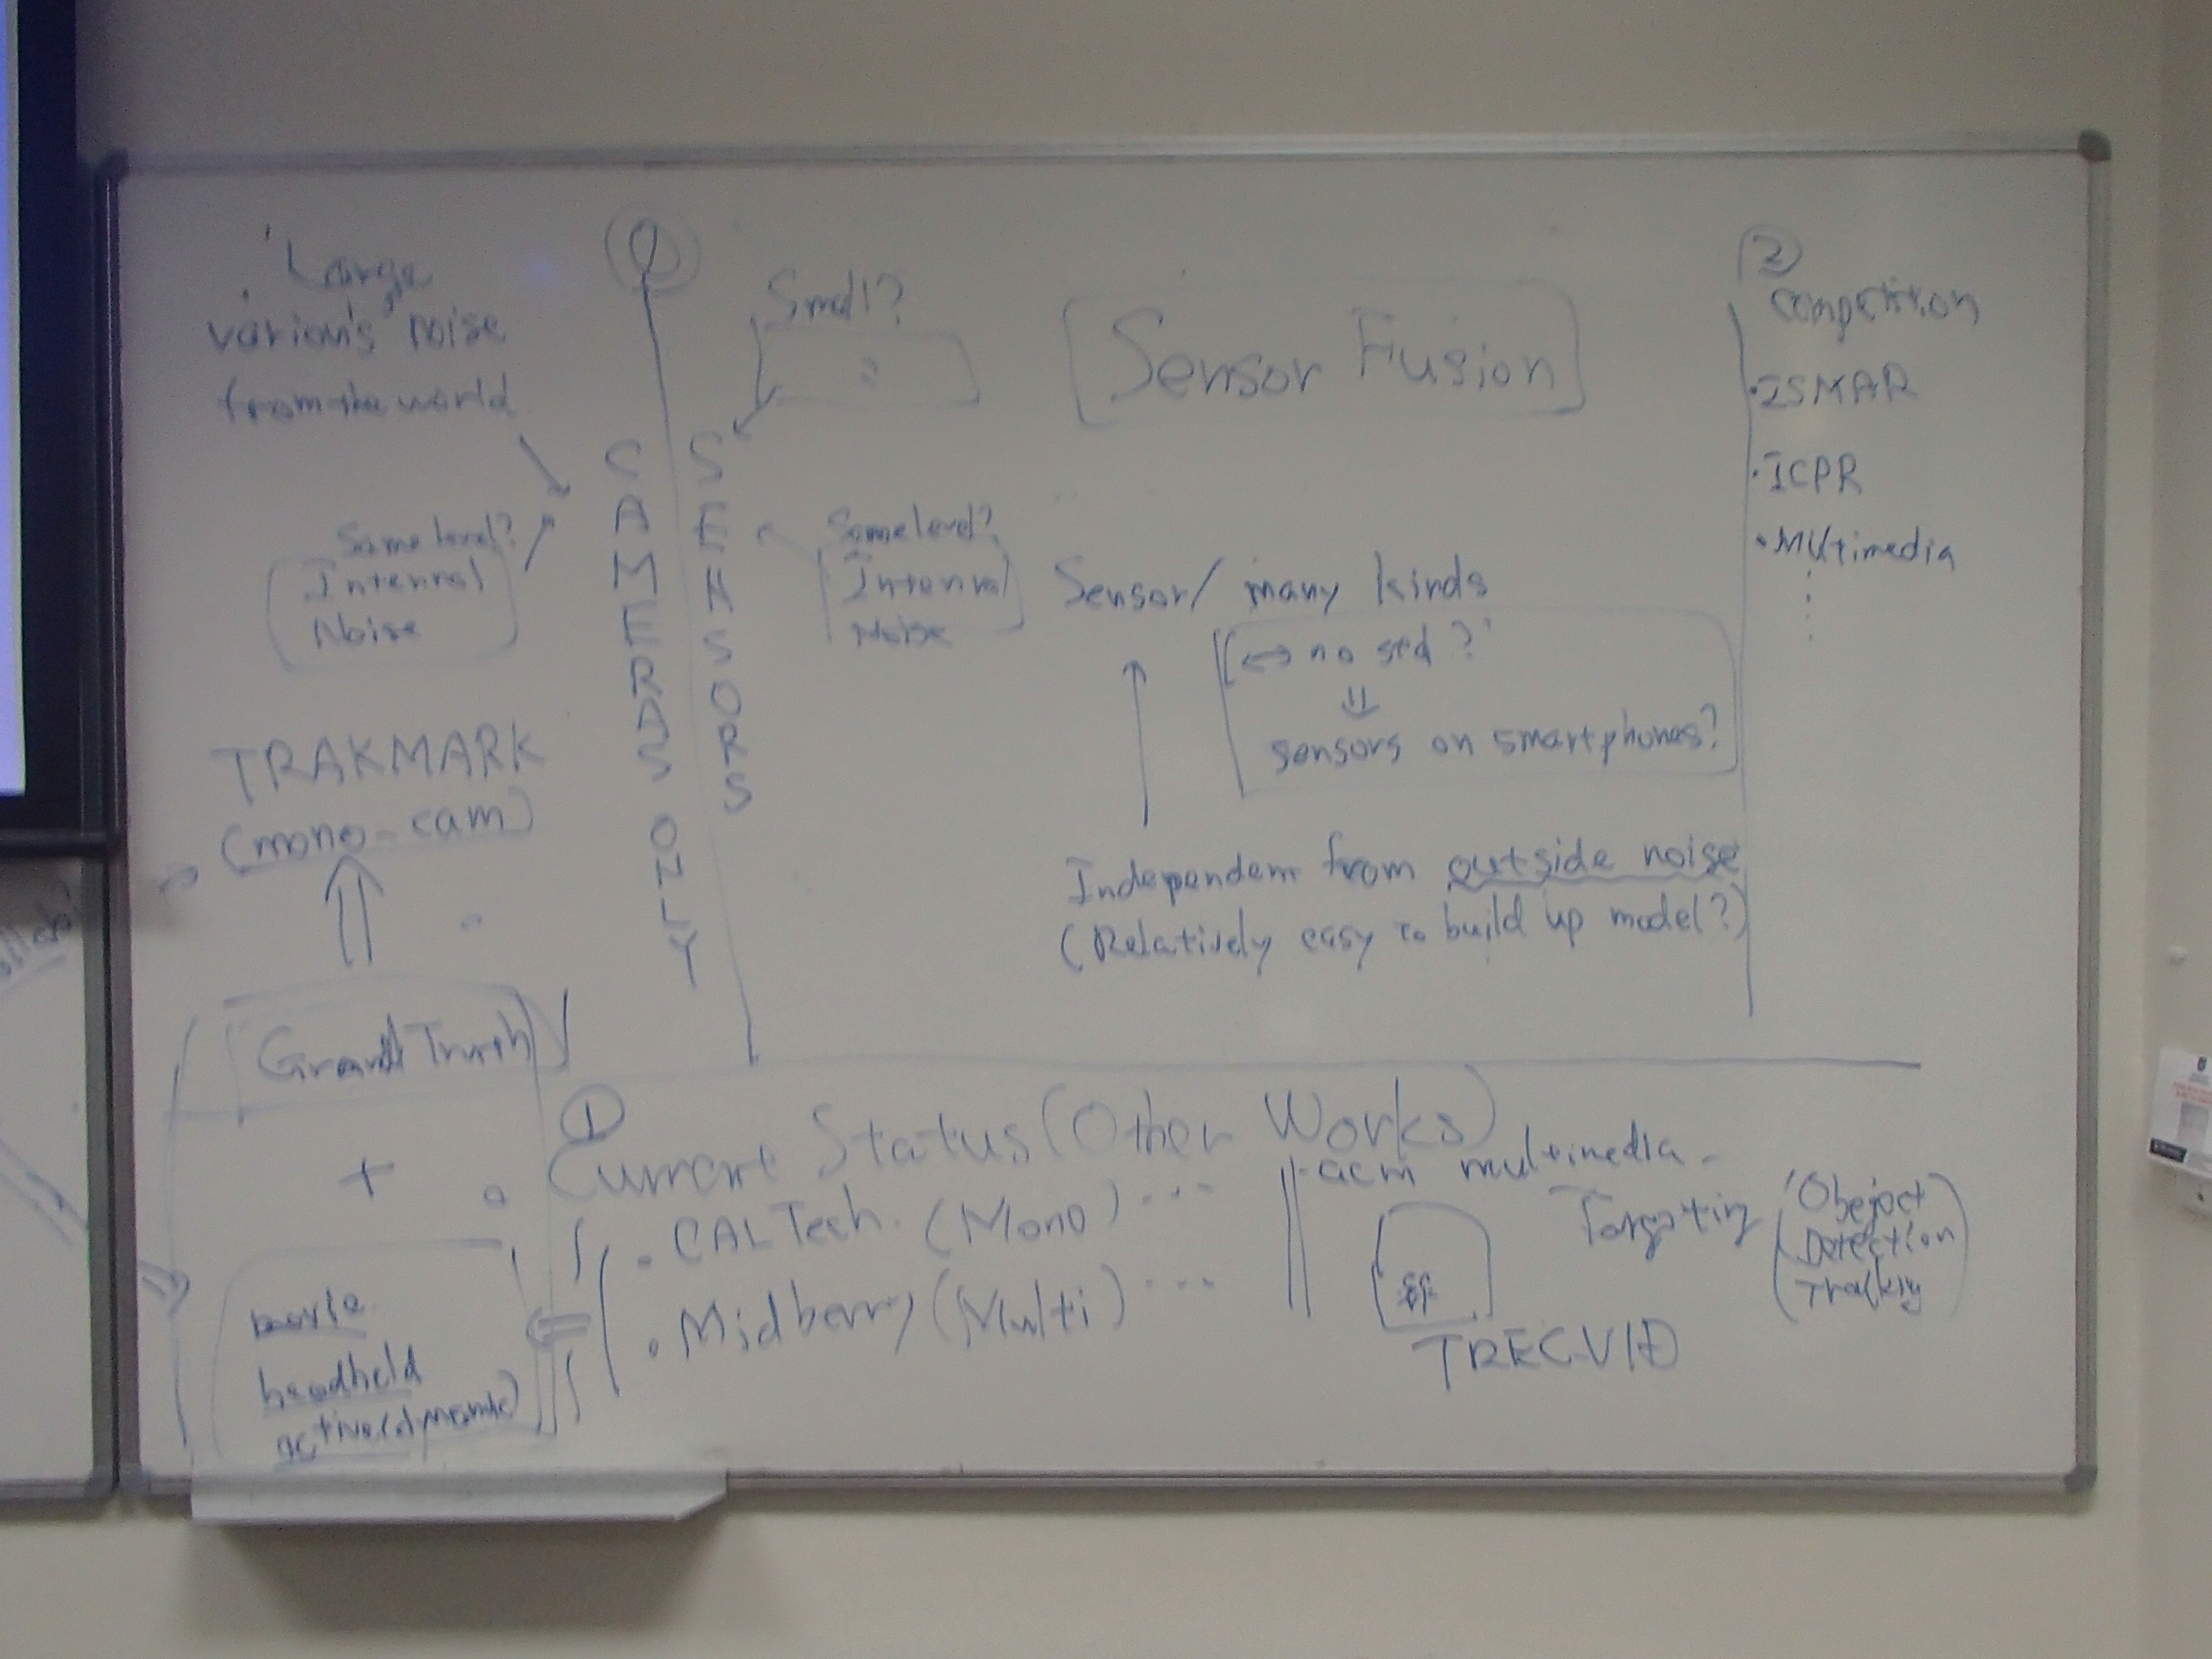 Large
various noise
from the world
Same level?
Internal
Noise
TRAKMARK
(mono-cam)
Ground Truth
+
movie
handheld
active(dynamic)
0
CAMERAS ONLY
SENSORS
Small?
Same level?
Internal
Noise
[Sensor Fusion]
Sensor/ many kinds
↔ no std?
⇓
sensors on smartphones?
Independent from outside noise
(Relatively easy to build up model?)
2
competition
・ISMAR
・ICPR
・Multimedia
1
Current Status (Other Works)
・CALTech. (Mono) ...
・Midberry (Multi) ...
・acm multimedia -
Targeting
Obeject
Detection
Tracking
TRECVID